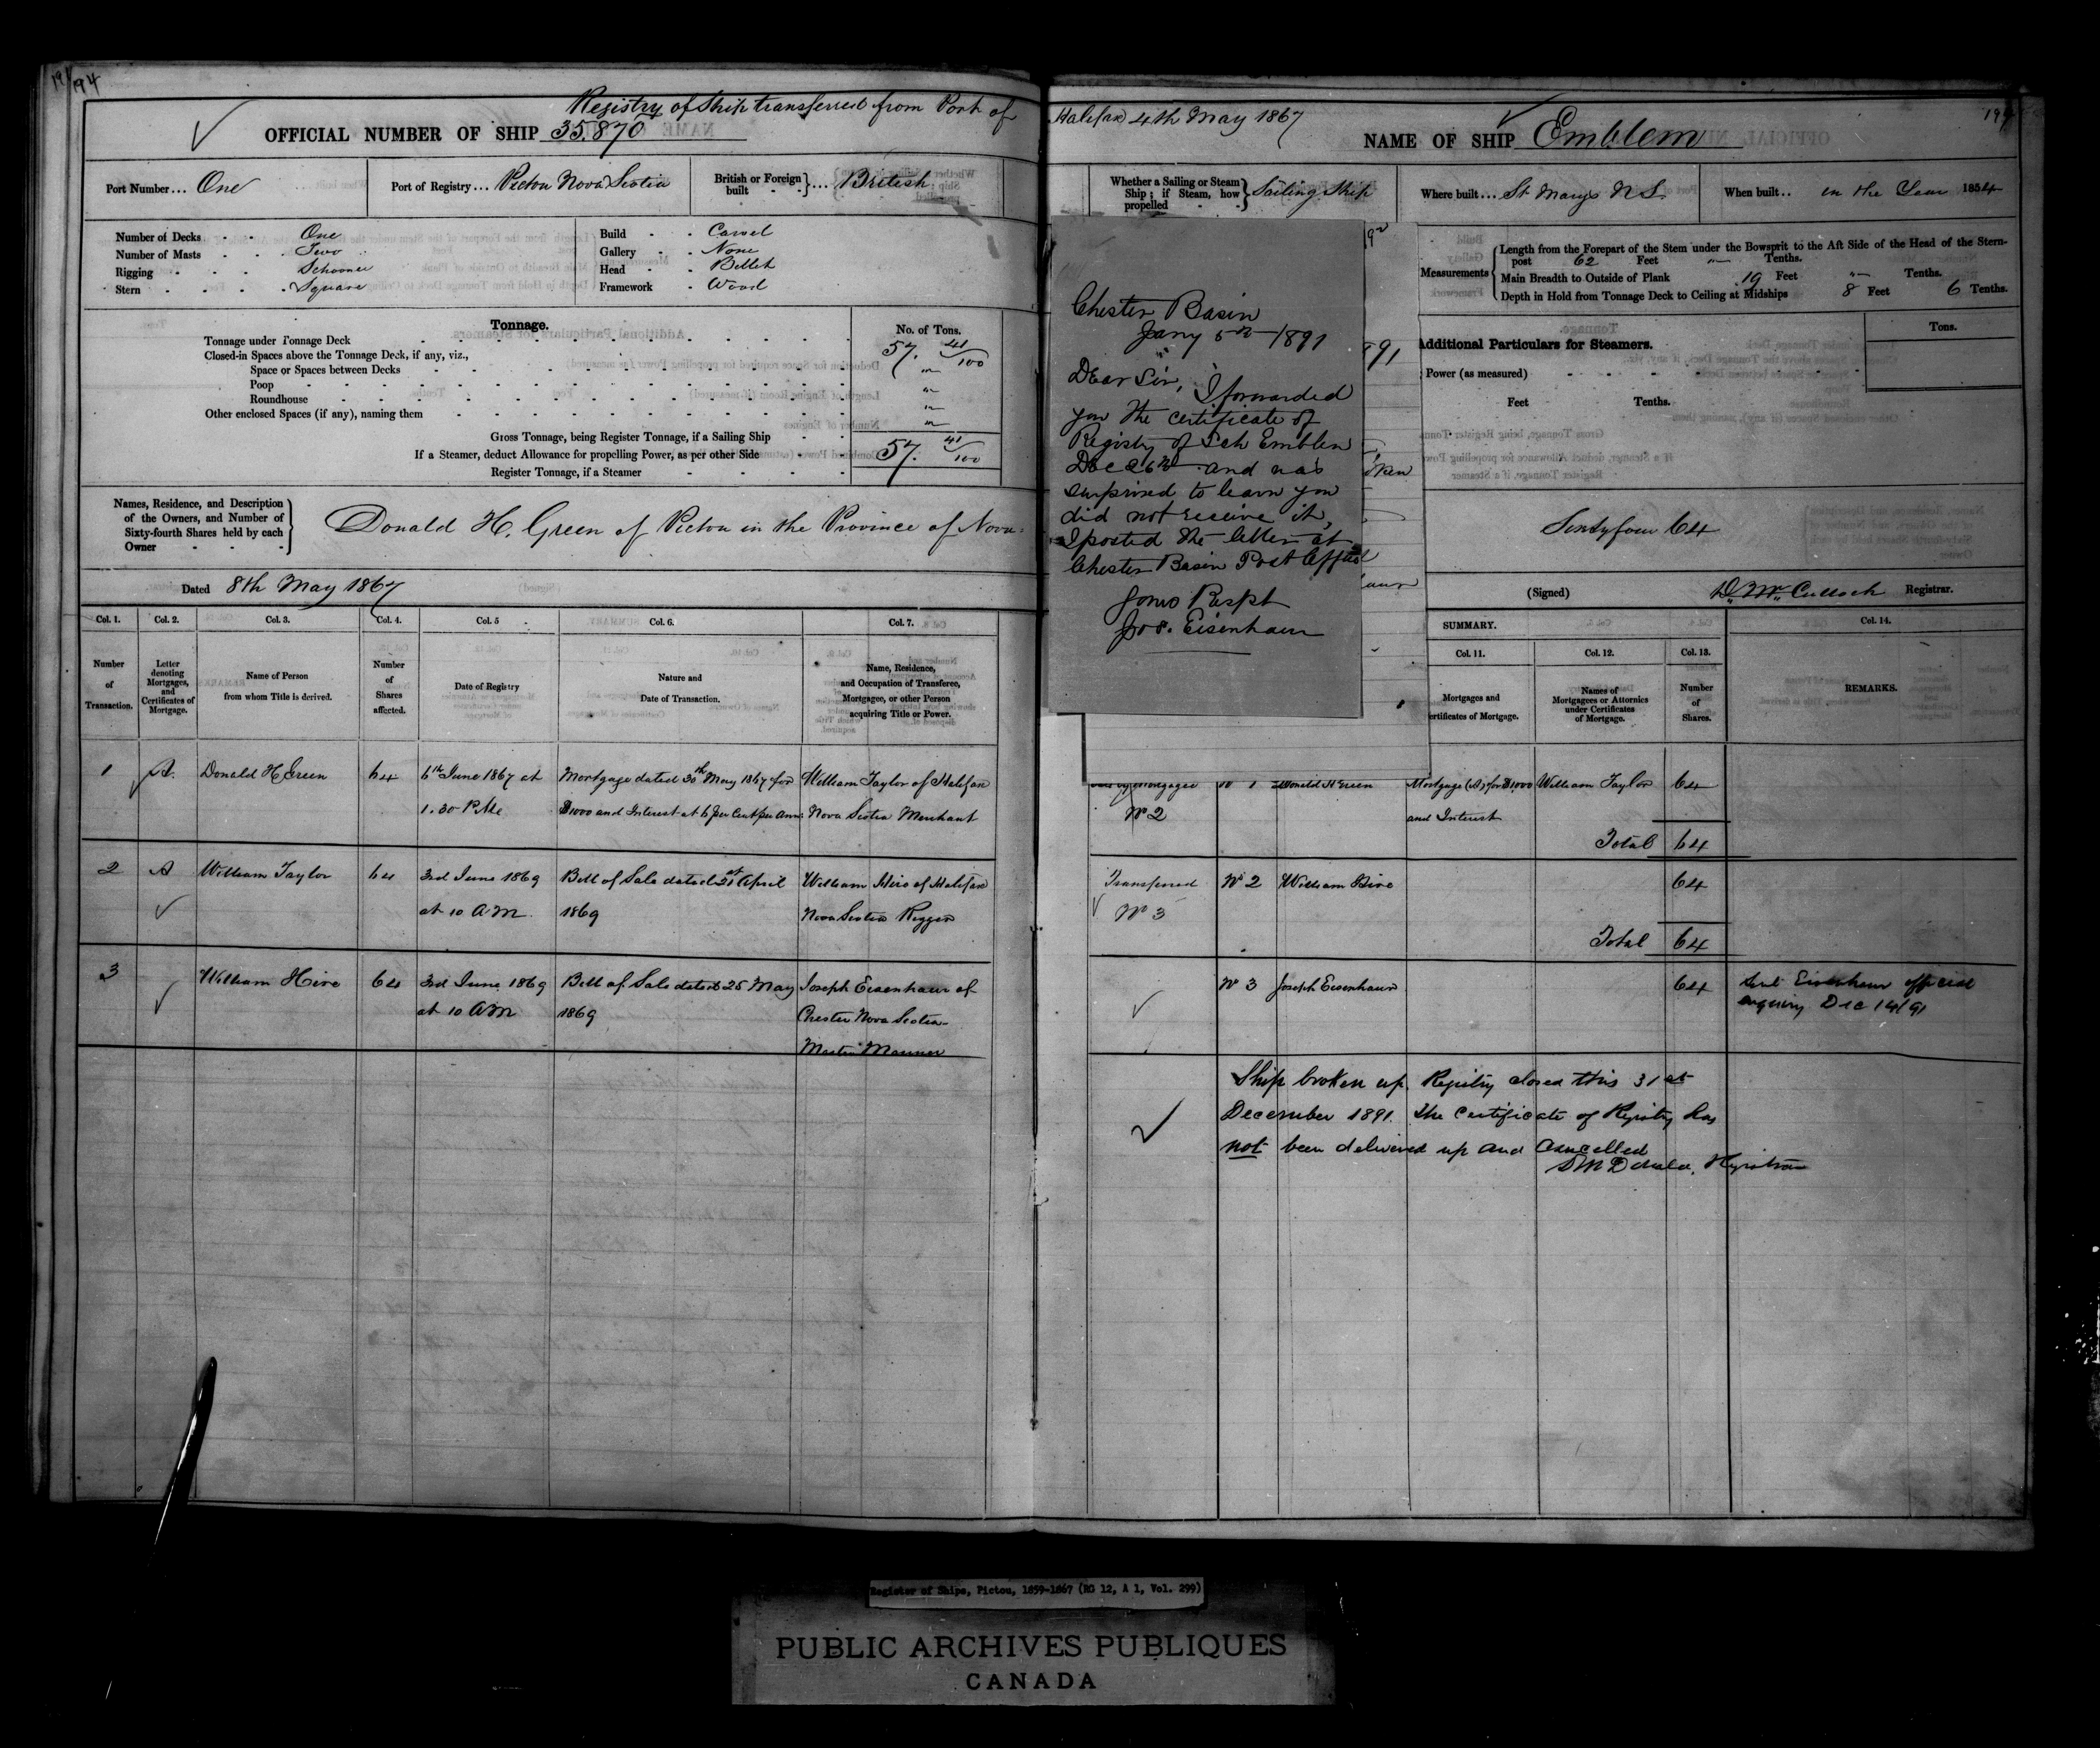 194
Registry of Ship transferred from Port of Halifax 4th May 1867
OFFICIAL NUMBER OF SHIP 35.870
Port Number... One
Port of Registry... Pictou Nova Scotia
British or Foreign built ... British
Number of Decks One
Number of Masts Two
Rigging Schooner
Stern Square
Build Carvel
Gallery None
Head Billet
Framework Wood
Tonnage.
No. of Tons.
Tonnage under Tonnage Deck 57. 41/100
Closed-in Spaces above the Tonnage Deck, if any, viz.,
Space or Spaces between Decks "
Poop "
Roundhouse "
Other enclosed Spaces (if any), naming them "
Gross Tonnage, being Register Tonnage, if a Sailing Ship 57. 41/100
If a Steamer, deduct Allowance for propelling Power, as per other Side
Register Tonnage, if a Steamer
Names, Residence, and Description of the Owners, and Number of Sixty-fourth Shares held by each Owner
Donald H. Green of Pictou in the Province of Nova
Dated 8th May 1867
Col. 1. Col. 2. Col. 3. Col. 4. Col. 5 Col. 6. Col. 7.
Number of Transaction.
Letter denoting Mortgages, and Certificates of Mortgage.
Name of Person from whom Title is derived.
Number of Shares affected.
Date of Registry
Nature and Date of Transaction.
Name, Residence, and Occupation of Transferee, Mortgagee, or other Person acquiring Title or Power.
1 A. Donald H Green 64 6th June 1867 at Mortgage dated 30th May 1867 for William Taylor of Halifax
1.30 P.M. $1000 and Interest at 6 per Cent per Ann: Nova Scotia Merchant
2 A William Taylor 64 3rd June 1869 Bill of Sale dated 21st April William Hire of Halifax
at 10 A.M. 1869 Nova Scotia Rigger
3 William Hire 64 3rd June 1869 Bill of Sale dated 25 May Joseph Eisenhaur of
at 10 A.M 1869 Chester Nova Scotia
Master Mariner
194
NAME OF SHIP Emblem
Whether a Sailing or Steam Ship; if Steam, how propelled Sailing Ship
Where built... St Marys N S.
When built.. in the Year 1854
Measurements
Length from the Forepart of the Stem under the Bowsprit to the Aft Side of the Head of the Stern-
post 62 Feet " Tenths.
Main Breadth to Outside of Plank 19 Feet " Tenths.
Depth in Hold from Tonnage Deck to Ceiling at Midships 8 Feet 6 Tenths.
Additional Particulars for Steamers.
Tons.
Power (as measured)
Feet Tenths.
Sixtyfour 64
(Signed) D. McCulloch Registrar.
Chester Basin
Jany 5th 1891
Dear Sir,
I forwarded
you the certificate of
Registry of Sch Emblem
Dec 26th and was
surprised to learn you
did not receive it,
I posted the letter at
Chester Basin Post Office
Yours Respt
Jos. Eisenhaur
SUMMARY.
Col. 11. Col. 12. Col. 13. Col. 14.
Mortgages and
ertificates of Mortgage.
Names of Mortgagees or Attornies under Certificates of Mortgage.
Number of Shares.
REMARKS.
No 1 Donald H Green Mortgage (A) for $1000 William Taylor 64
No 2 and Interest
Total 64
Transferred No 2 William Hire 64
No 3
Total 64
No 3 Joseph Eisenhaur 64 Sent Eisenhaur official
enquiry Dec 14/91
Ship broken up. Registry closed this 31st
December 1891. The Certificate of Registry has
not been delivered up and Cancelled
Registrar
Register of Ships, Pictou, 1859-1867 (RG 12, A 1, Vol. 299)
PUBLIC ARCHIVES PUBLIQUES
CANADA